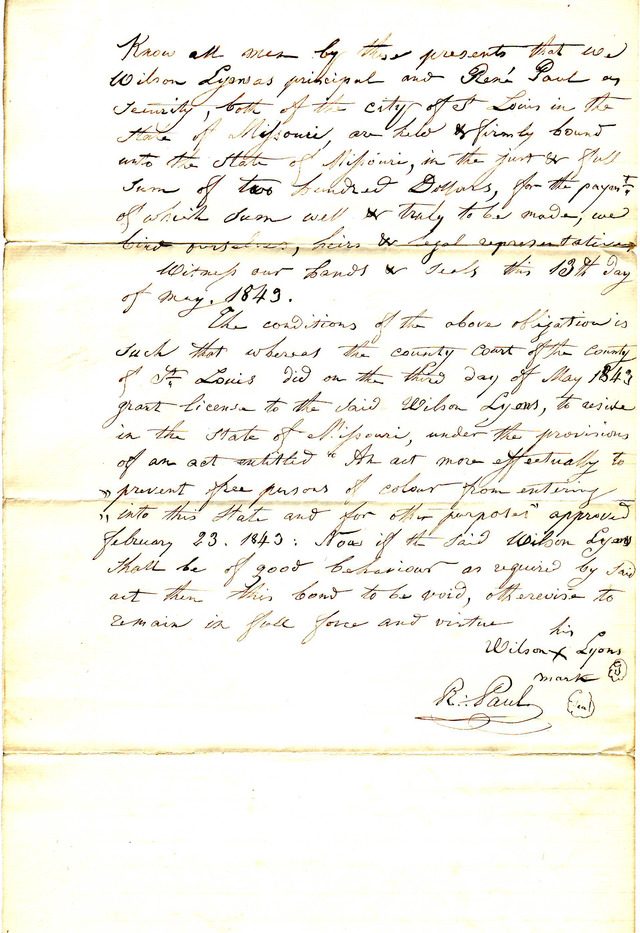 Know all men by these presents that we
Wilson Lyons as principal and René Paul as
Security, both of the city of St Louis in the
State of Missouri, are held & firmly bound
unto the State of Missouri, in the just & full
Sum of two hundred Dollars, for the paymt.
of which Sum well & truly to be made, we
bind ourselves, heirs & legal representatives
Witness our hands & Seals this 13th Day
of May. 1843.
The conditions of the above obligation is
Such that whereas the county Court of the County
of St. Louis did on the third day of May 1843
grant license to the Said Wilson Lyons, to reside
in the State of Missouri, under the provisions
of an act entitled "An act more effectually to
" prevent free persons of colour from entering
" into this State and for other purposes" approved
february 23. 1843: Now if the Said Wilson Lyons
Shall be of good behaviour as required by Said
act then this bond to be void, otherevise to
remain in full force and virtue
his
Wilson X Lyons
mark
R. Paul Seal